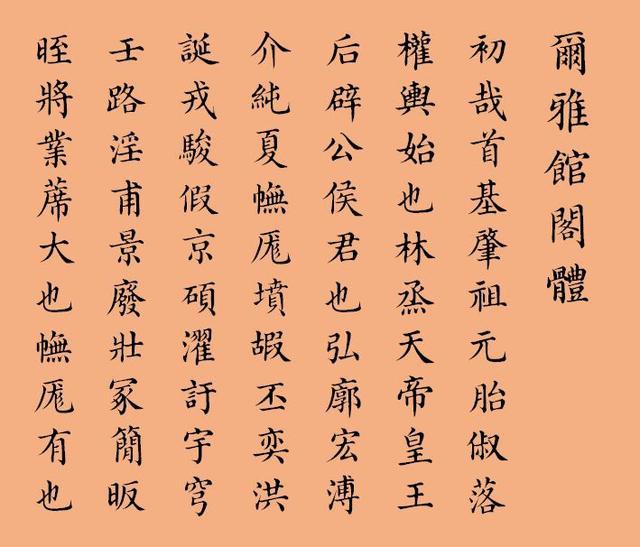 爾雅館閣體
初哉首基肇祖元胎俶落
權輿始也林烝天帝皇王
后辟公侯君也弘廓宏溥
介純夏幠厖墳嘏丕奕洪
誕戎駿假京碩濯訏宇穹
壬路淫甫景廢壯冢簡昄
晊將業蓆大也幠厖有也